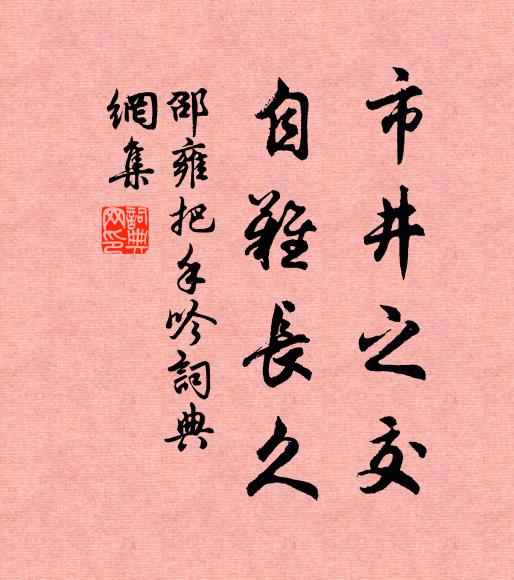 市井之交
自難長久
邵雍把手吟詞典
網集
詞典網印